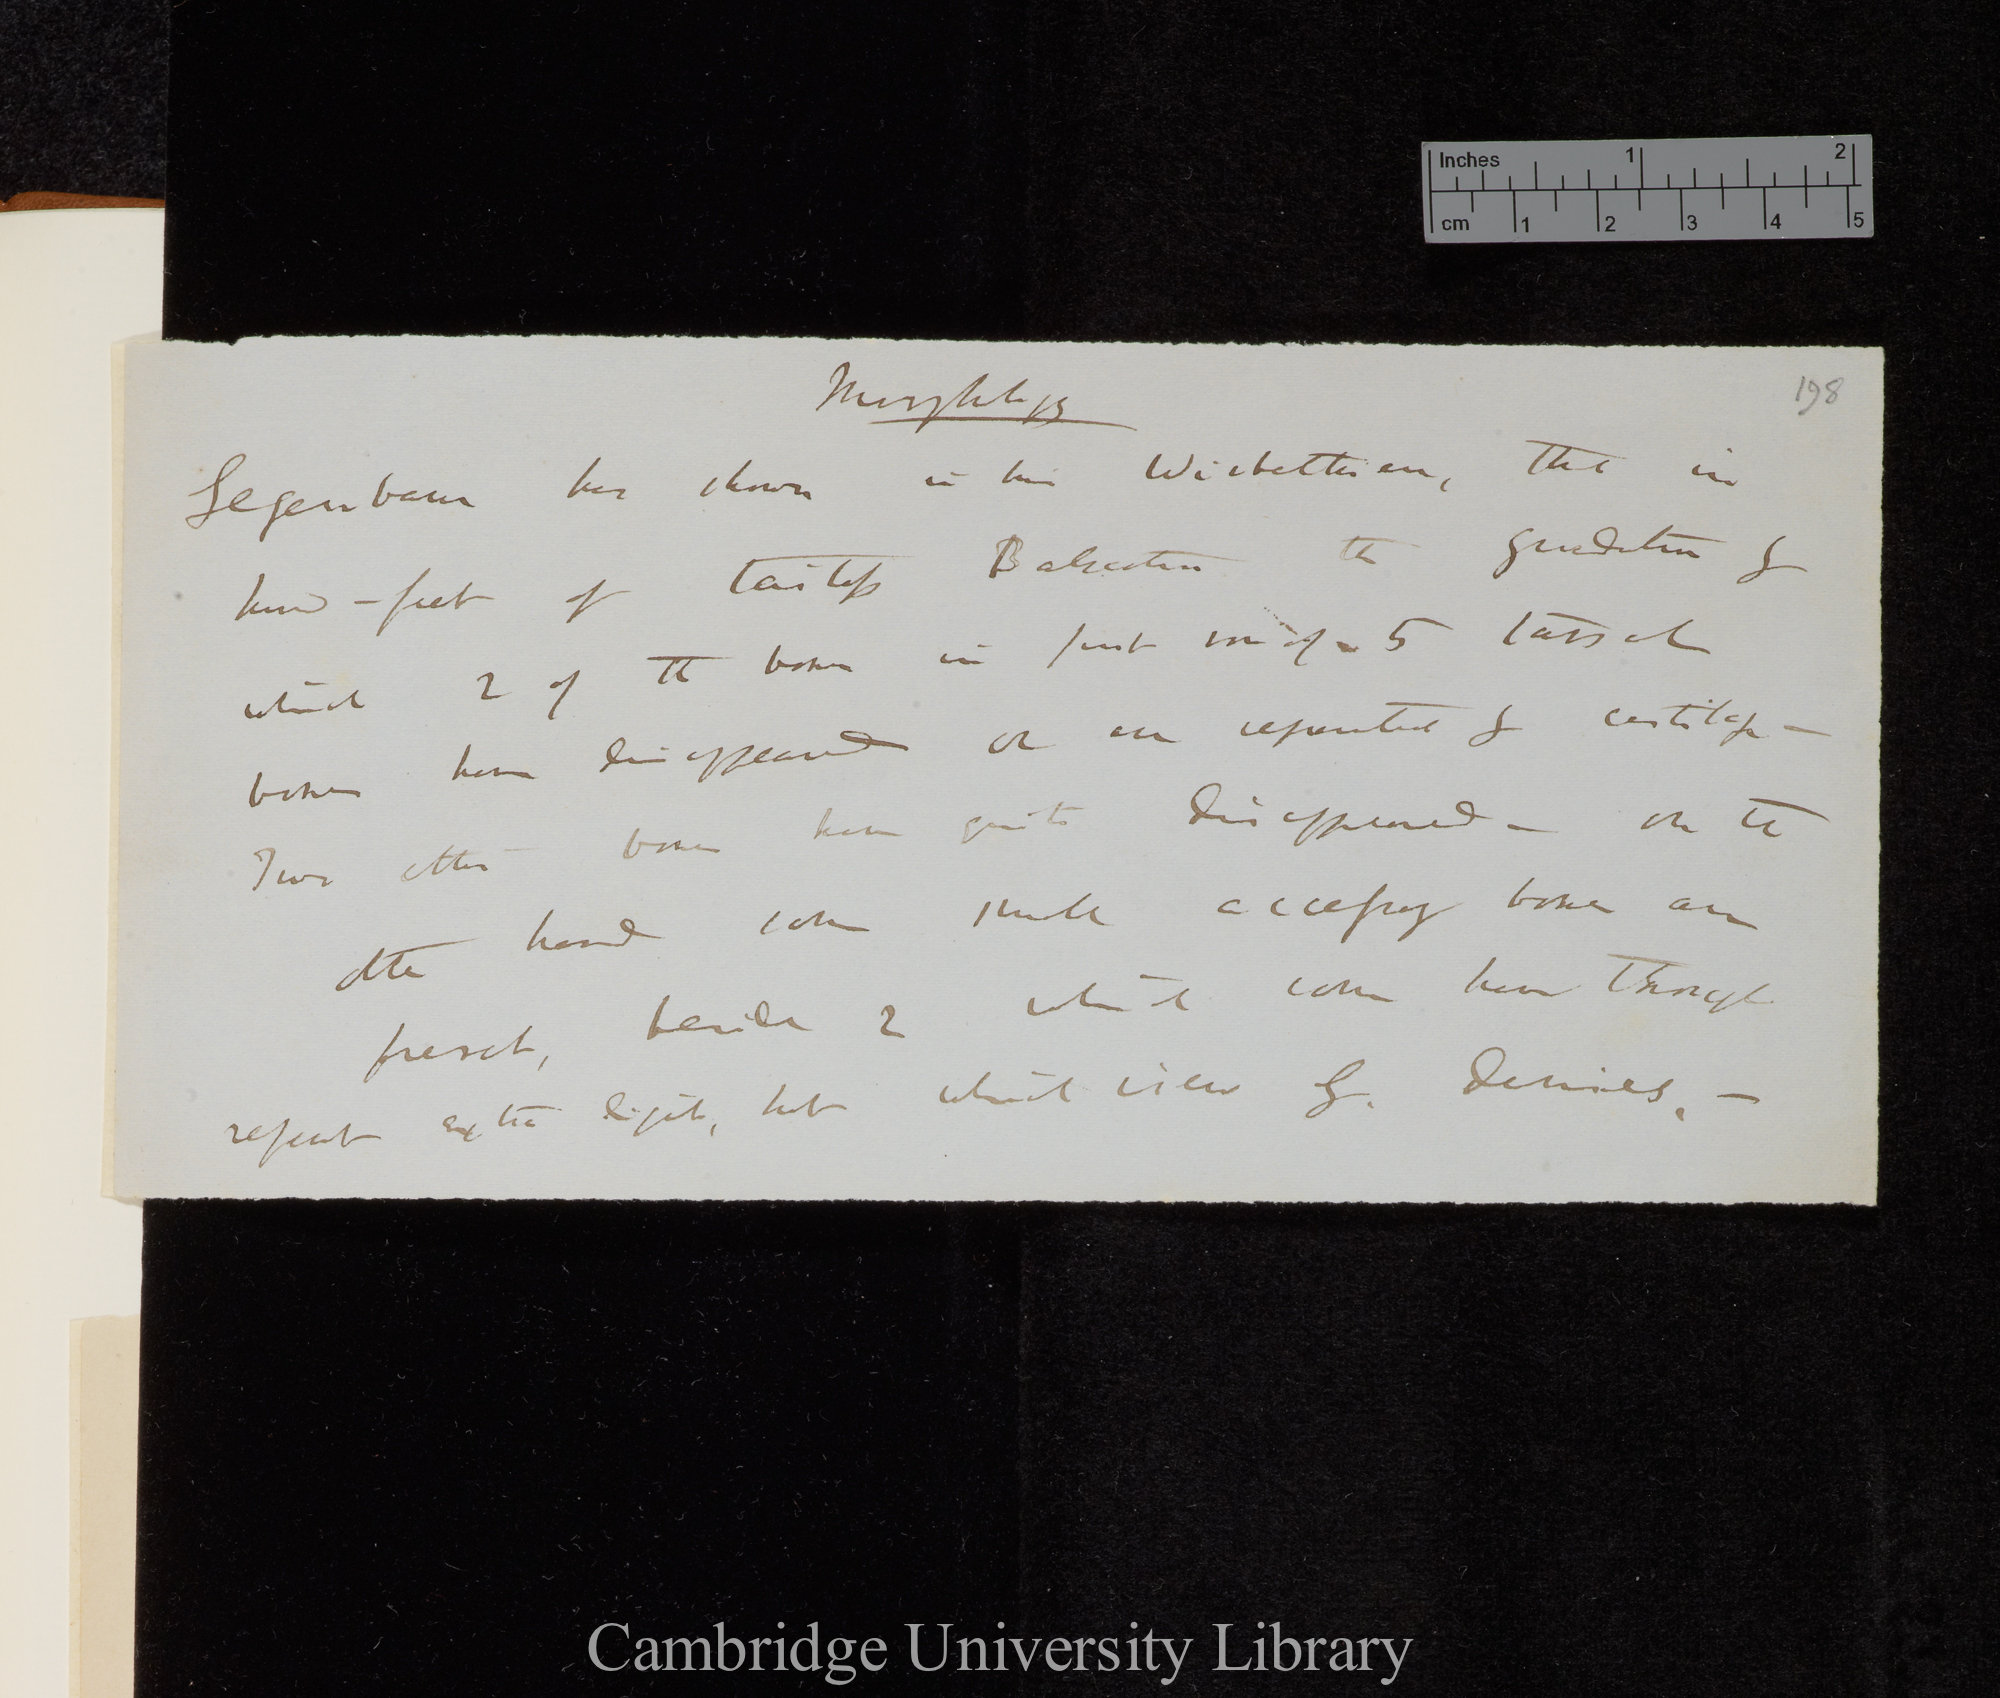 Inches 1 2
cm 1 2 3 4 5
198
Morphology
Gegenbaur has shown in his Wirbelthiere, that in
hind-feet of tailless Batrachia the gradation by
which 2 of the bones in first row of 5 tarsal
bones have disappeared or are represented by cartilage —
Two other bones have quite disappeared — on the
other hand some small accessory bones are
present, beside 2 which some have thought
represent extra digits, but which view G. denies. —
Cambridge University Library